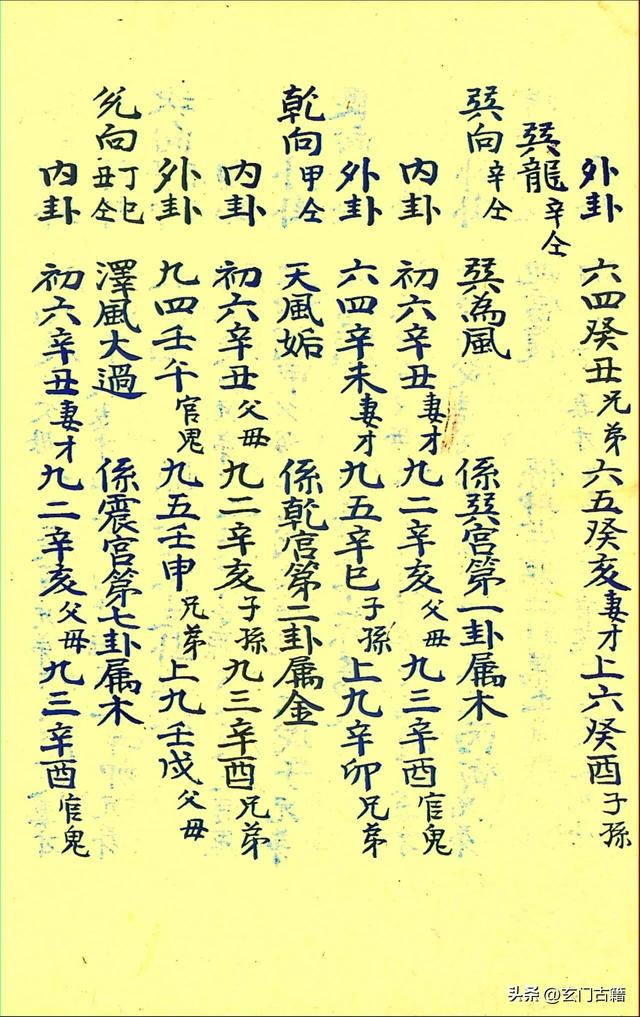 外卦 六四癸丑兄弟六五癸亥妻才上六癸酉子孫
巽龍辛仝
巽向辛仝 巽為風 係巽宮第一卦属木
内卦 初六辛丑妻才九二辛亥父母九三辛酉官鬼
外卦 六四辛未妻才九五辛巳子孫上九辛卯兄弟
乾向甲仝 天風姤 係乾宮第二卦属金
内卦 初六辛丑父母九二辛亥子孫九三辛酉兄弟
外卦 九四壬午官鬼九五壬申兄弟上九壬戌父母
兊向丁巳丑仝 澤風大過 係震宮第七卦属木
内卦 初六辛丑妻才九二辛亥父母九三辛酉官鬼
头条 @玄门古籍